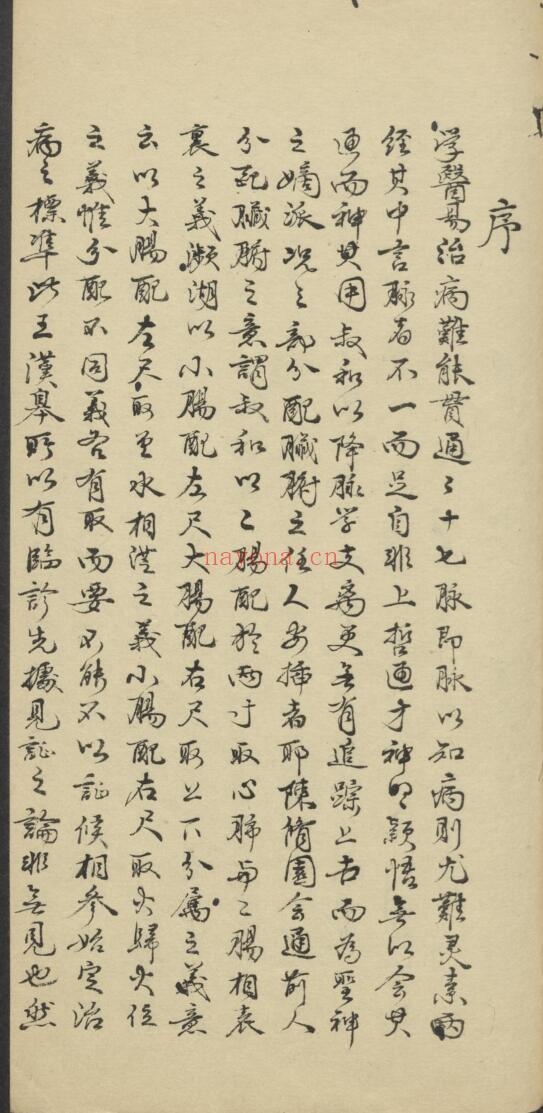 序
学醫易治病難能貫通二十七脉即脉以知病則尤難灵素两
经其中言脉者不一而足自非上哲通才神明颖悟無以会其
通而神其用叔和以降脉学支离更無有追踪上古而為聖神
之嫡派况之部分配臟腑之任人安插者耶陳脩園会通前人
分配臟腑之意謂叔和以二腸配於两寸取心肺与二腸相表
裏之義瀕湖以小腸配左尺大腸配右尺取上下分属之義意
云以大腸配左尺取金水相涵之義小腸配右尺取火歸火位
之義惟分配不同義各有取而要不能不以証候相参始定治
病之標準此王漢皋所以有臨診先據見証之論非無見也然
nayona.cn